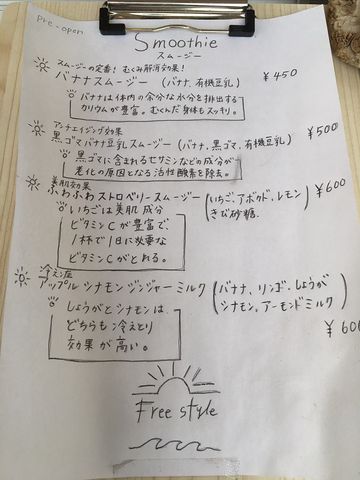 Pre-open
Smoothie
スムージー
スムージーの定番！むくみ解消効果！
バナナスムージー （バナナ、有機豆乳） ￥450
バナナは体内の余分な水分を排出する
カリウムが豊富。むくんだ身体もスッキリ。
アンチエイジング効果
黒ゴマバナナ豆乳スムージー （バナナ、黒ゴマ、有機豆乳） ￥500
黒ゴマに含まれるセサミンなどの成分が
老化の原因となる活性酸素を除去。
美肌効果
ふわふわストロベリースムージー （いちご、アボカド、レモン ￥600
きび砂糖）
いちごは美肌成分
ビタミンCが豊富で
1杯で1日に必要な
ビタミンCがとれる。
冷え症
アップルシナモンジンジャーミルク （バナナ、リンゴ、しょうが
シナモン、アーモンドミルク）
￥600
しょうがとシナモンは
どちらも冷えとり
効果が高い。
Free style